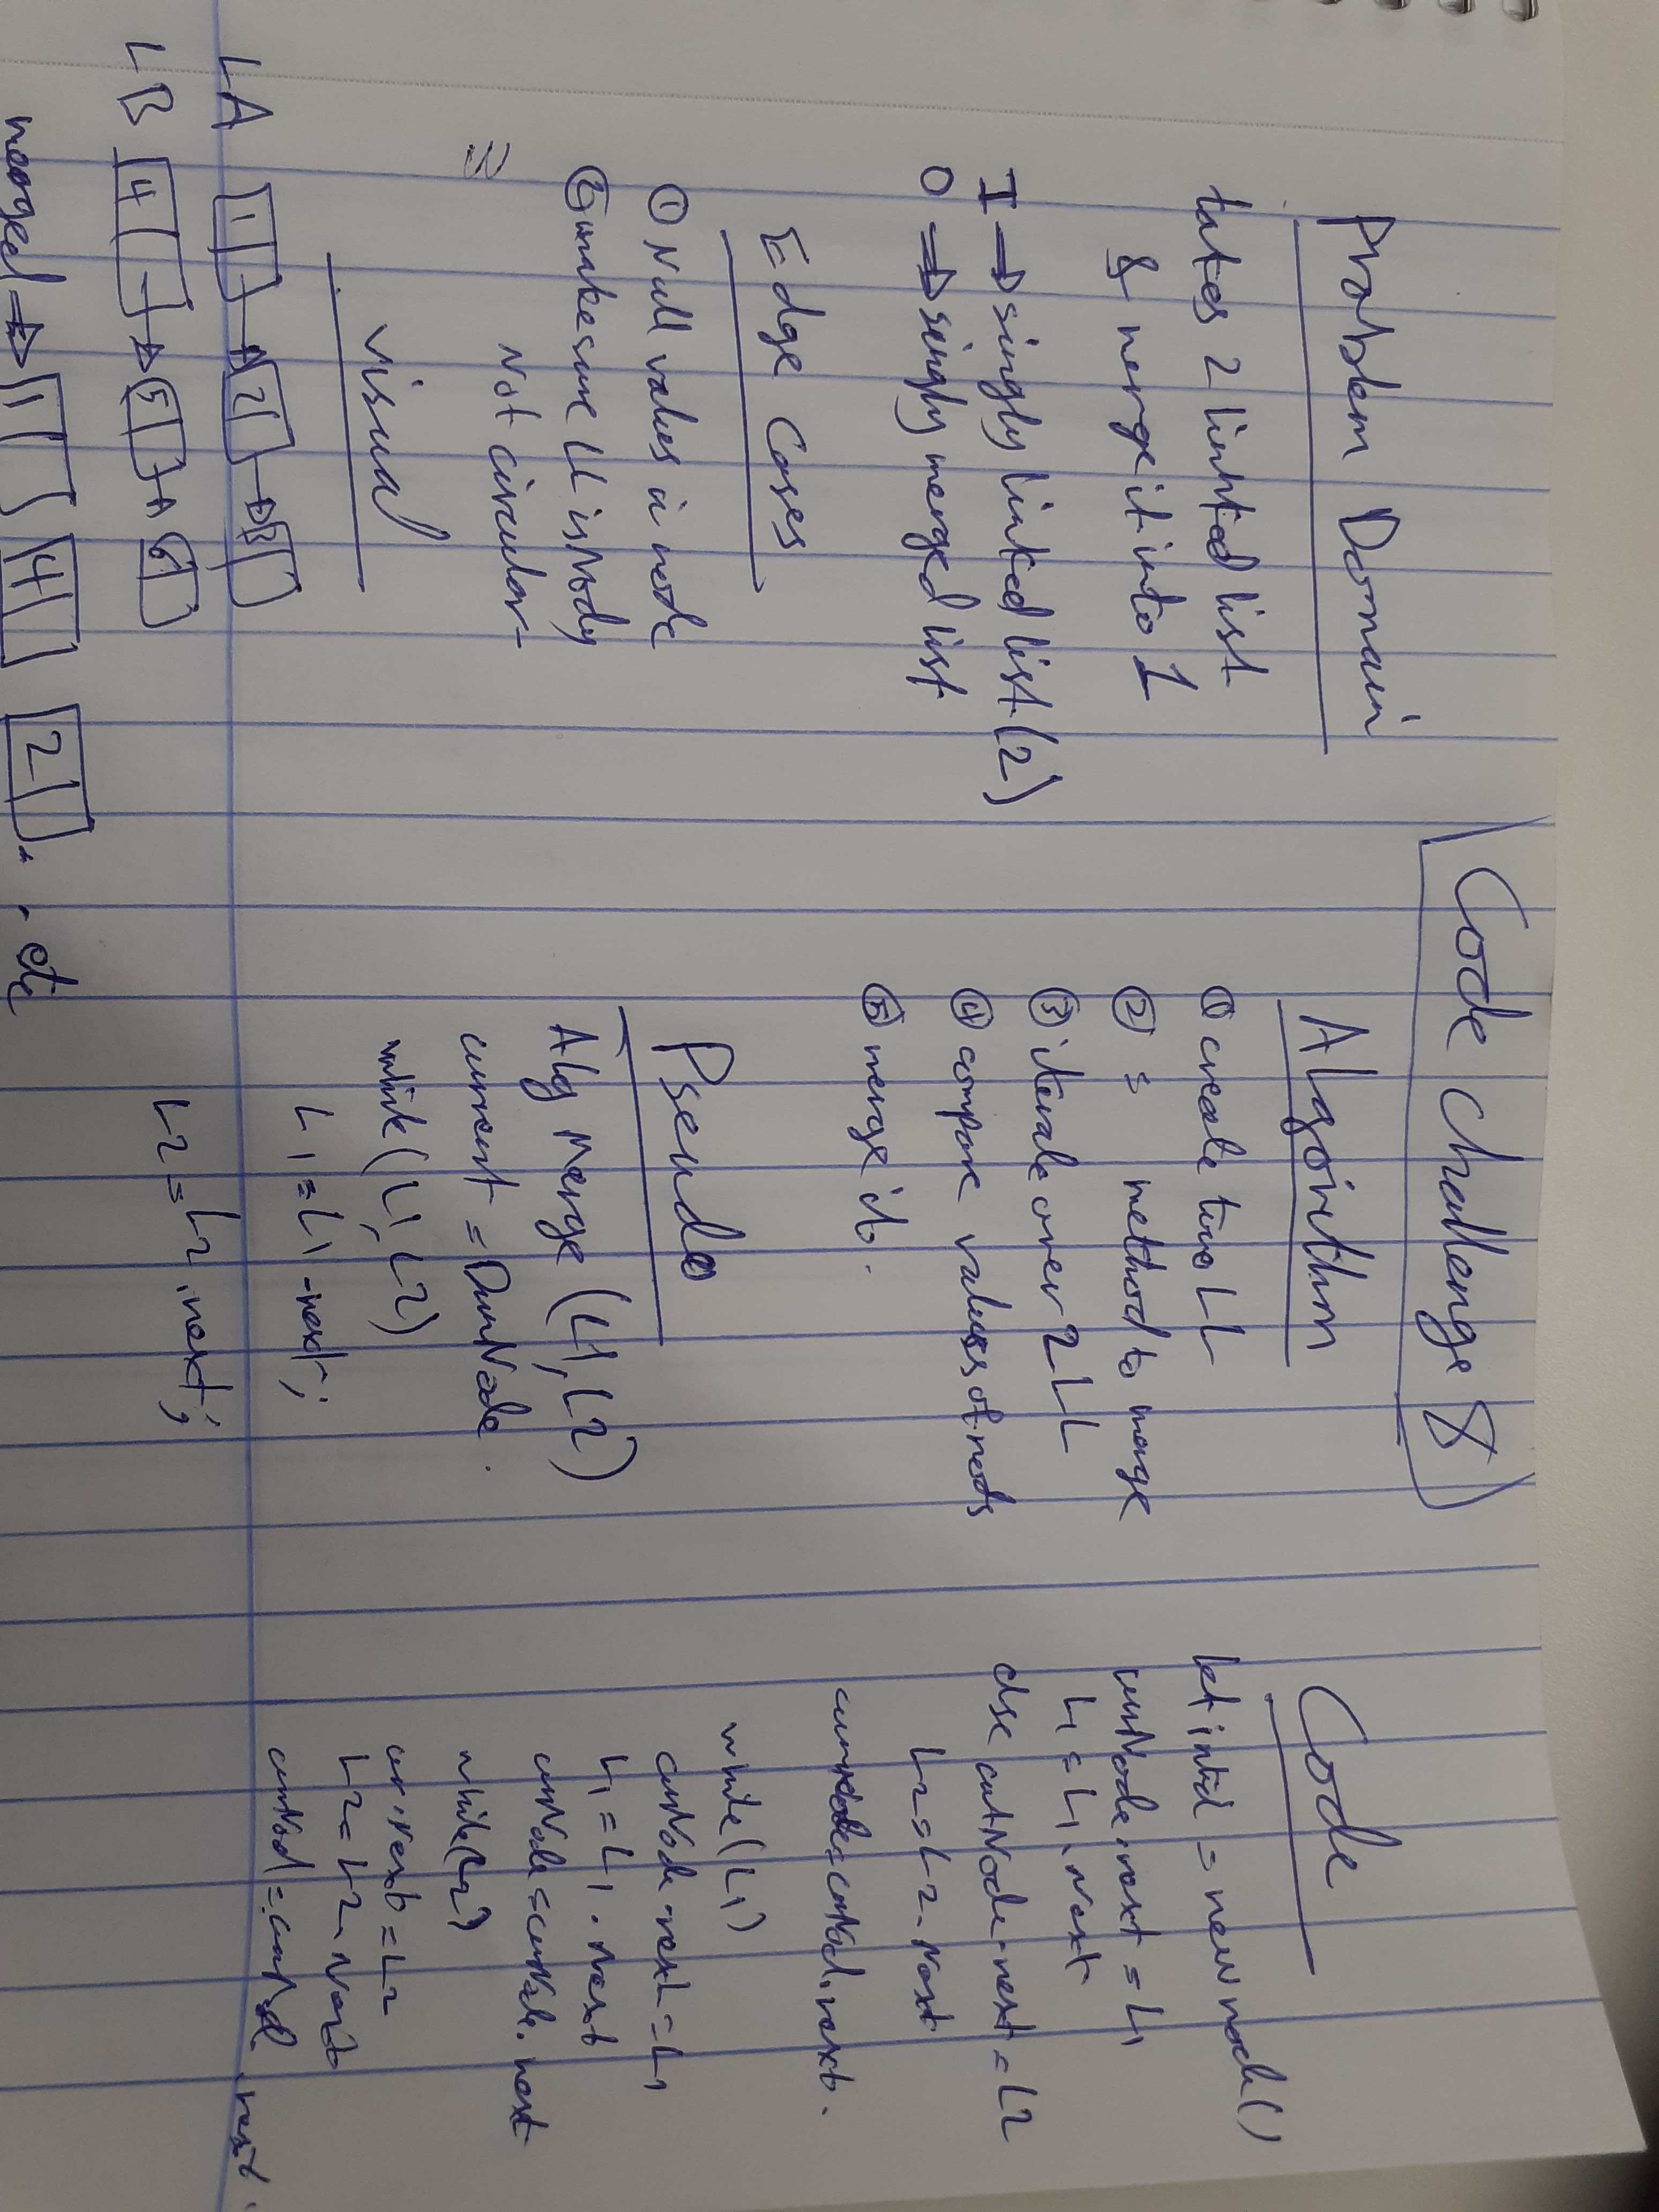 Code Challenge 8
Problem Domain
takes 2 linked list
& merge it into 1
I → singly linked list (2)
O → singly merged list
Edge Cases
① Null values in node
② make sure LL is
Not circular
Visual
LA 1 → 2 → 3
LB 4 → 5 → 6
merged → 1 4 2 . . etc
Algorithm
① create two LL
② = method to merge
③ iterate over 2 LL
④ compare values of nods
⑤ merge it.
Pseudo
Alg Merge (L1, L2)
current = DumNode
while (L1, L2)
L1 = L1.next;
L2 = L2.next;
Code
let = new node()
currNode.next = L1
L1 = L1.next
else currNode.next = L2
L2 = L2.next
while (L1)
currNode.next = L1
L1 = L1.next
while (L2)
L2 = L2.next